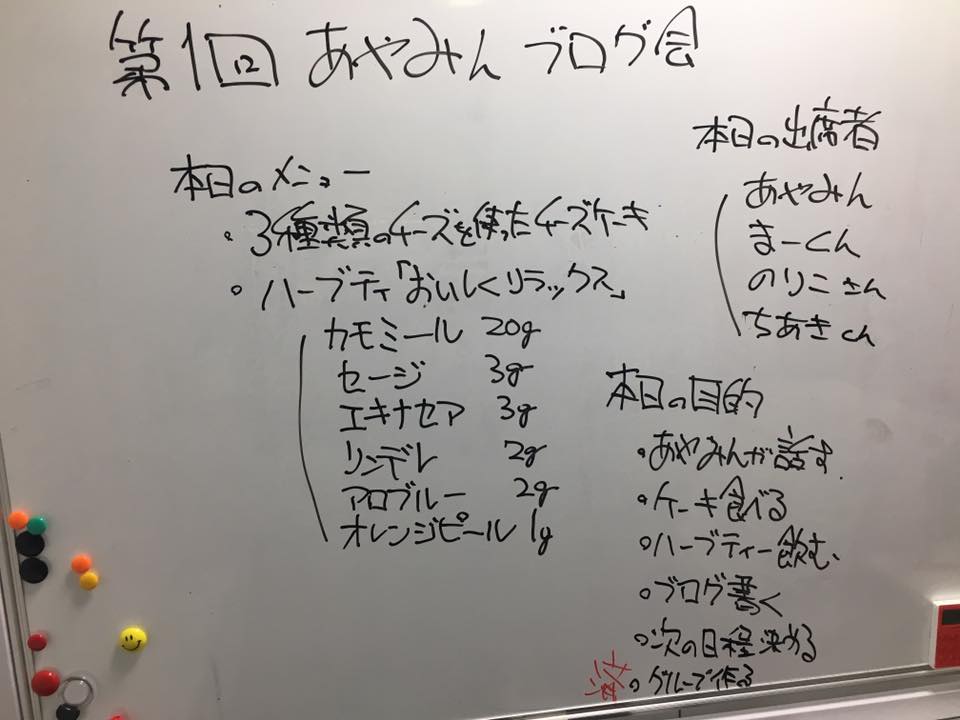 第1回 あやみん ブログ会
本日のメニュー
・3種類のチーズを使ったチーズケーキ
・ハーブティ「おいしくリラックス」
カモミール 20g
セージ 3g
エキナセア 3g
リンデレ 2g
アロブルー 2g
オレンジピール 1g
本日の出席者
あやみん
まーくん
のりこさん
ちあきくん
本日の目的
・あやみんが話す
・ケーキ食べる
・ハーブティー飲む、
・ブログ書く
・次の日程決める
・グループ作る